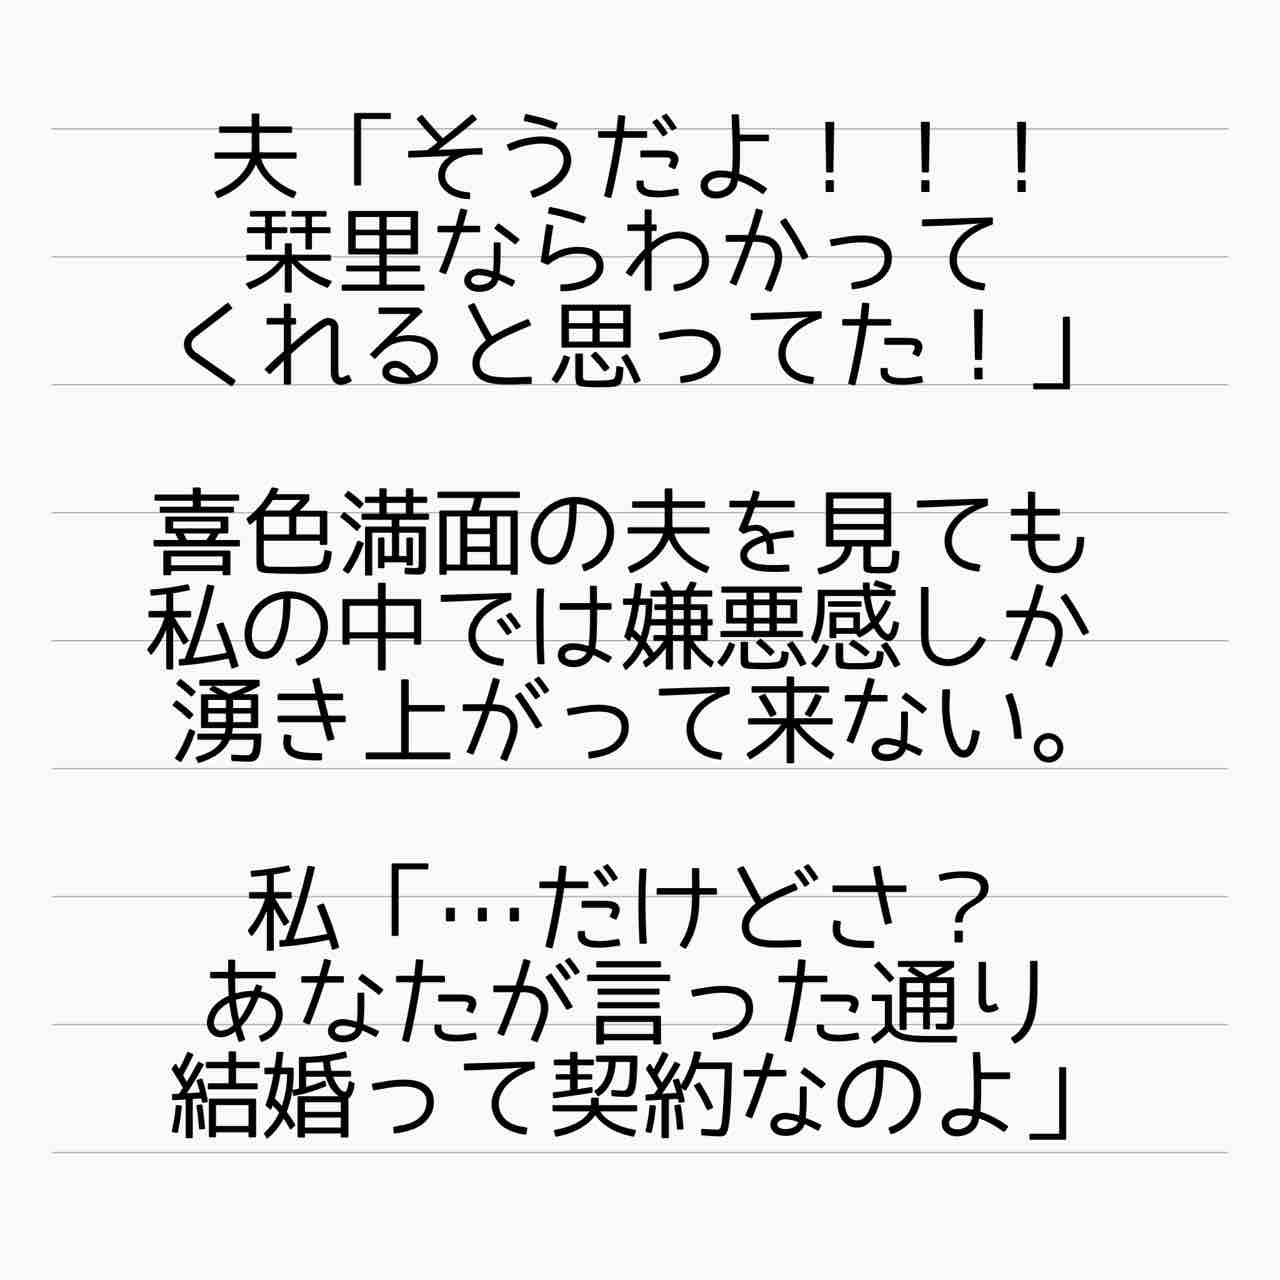 夫「そうだよ！！！
栞里ならわかって
くれると思ってた！」
喜色満面の夫を見ても
私の中では嫌悪感しか
湧き上がって来ない。
私「…だけどさ？
あなたが言った通り
結婚って契約なのよ」